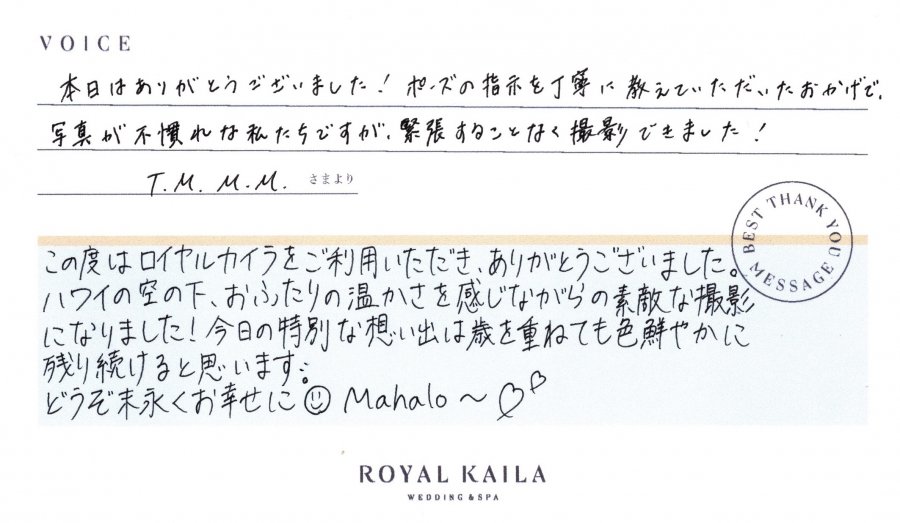 VOICE
本日はありがとうございました！ポーズの指示を丁寧に教えていただいたおかげで、
写真が不慣れな私たちですが、緊張することなく撮影できました！
T.M. M.M. さまより
BEST THANK YOU MESSAGE
この度はロイヤルカイラをご利用いただき、ありがとうございました。
ハワイの空の下、おふたりの温かさを感じながらの素敵な撮影
になりました！今日の特別な想い出は歳を重ねても色鮮やかに
残り続けると思います。
どうぞ末永くお幸せに☺ Mahalo～♡♡
ROYAL KAILA
WEDDING & SPA